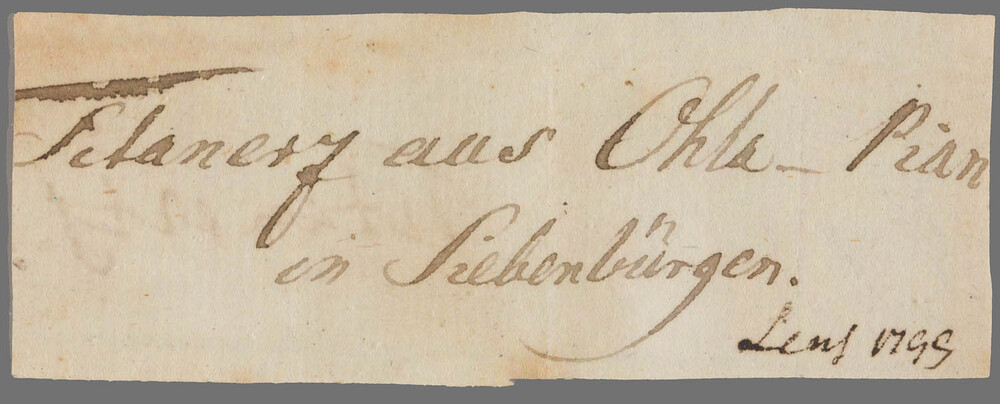 Titanerz aus Ohla-Pian
in Siebenbürgen.
Lenz 1799